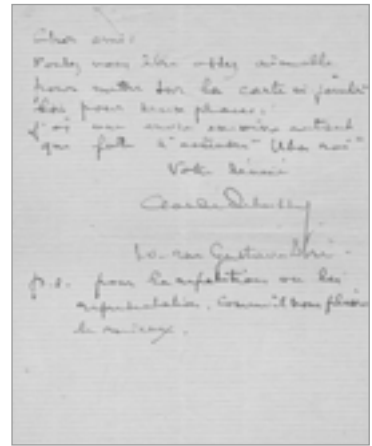 Cher ami,
Voulez vous être assez aimable
pour mettre sur la carte ci jointe
pour deux places.
J'ai une envie
que folle d'entendre "Ubu roi"
Votre dévoué
Claude Debussy
10. rue Gustave Doré.
p.s. pour la répétition ou la
représentation. Comme il vous plaira
le mieux.